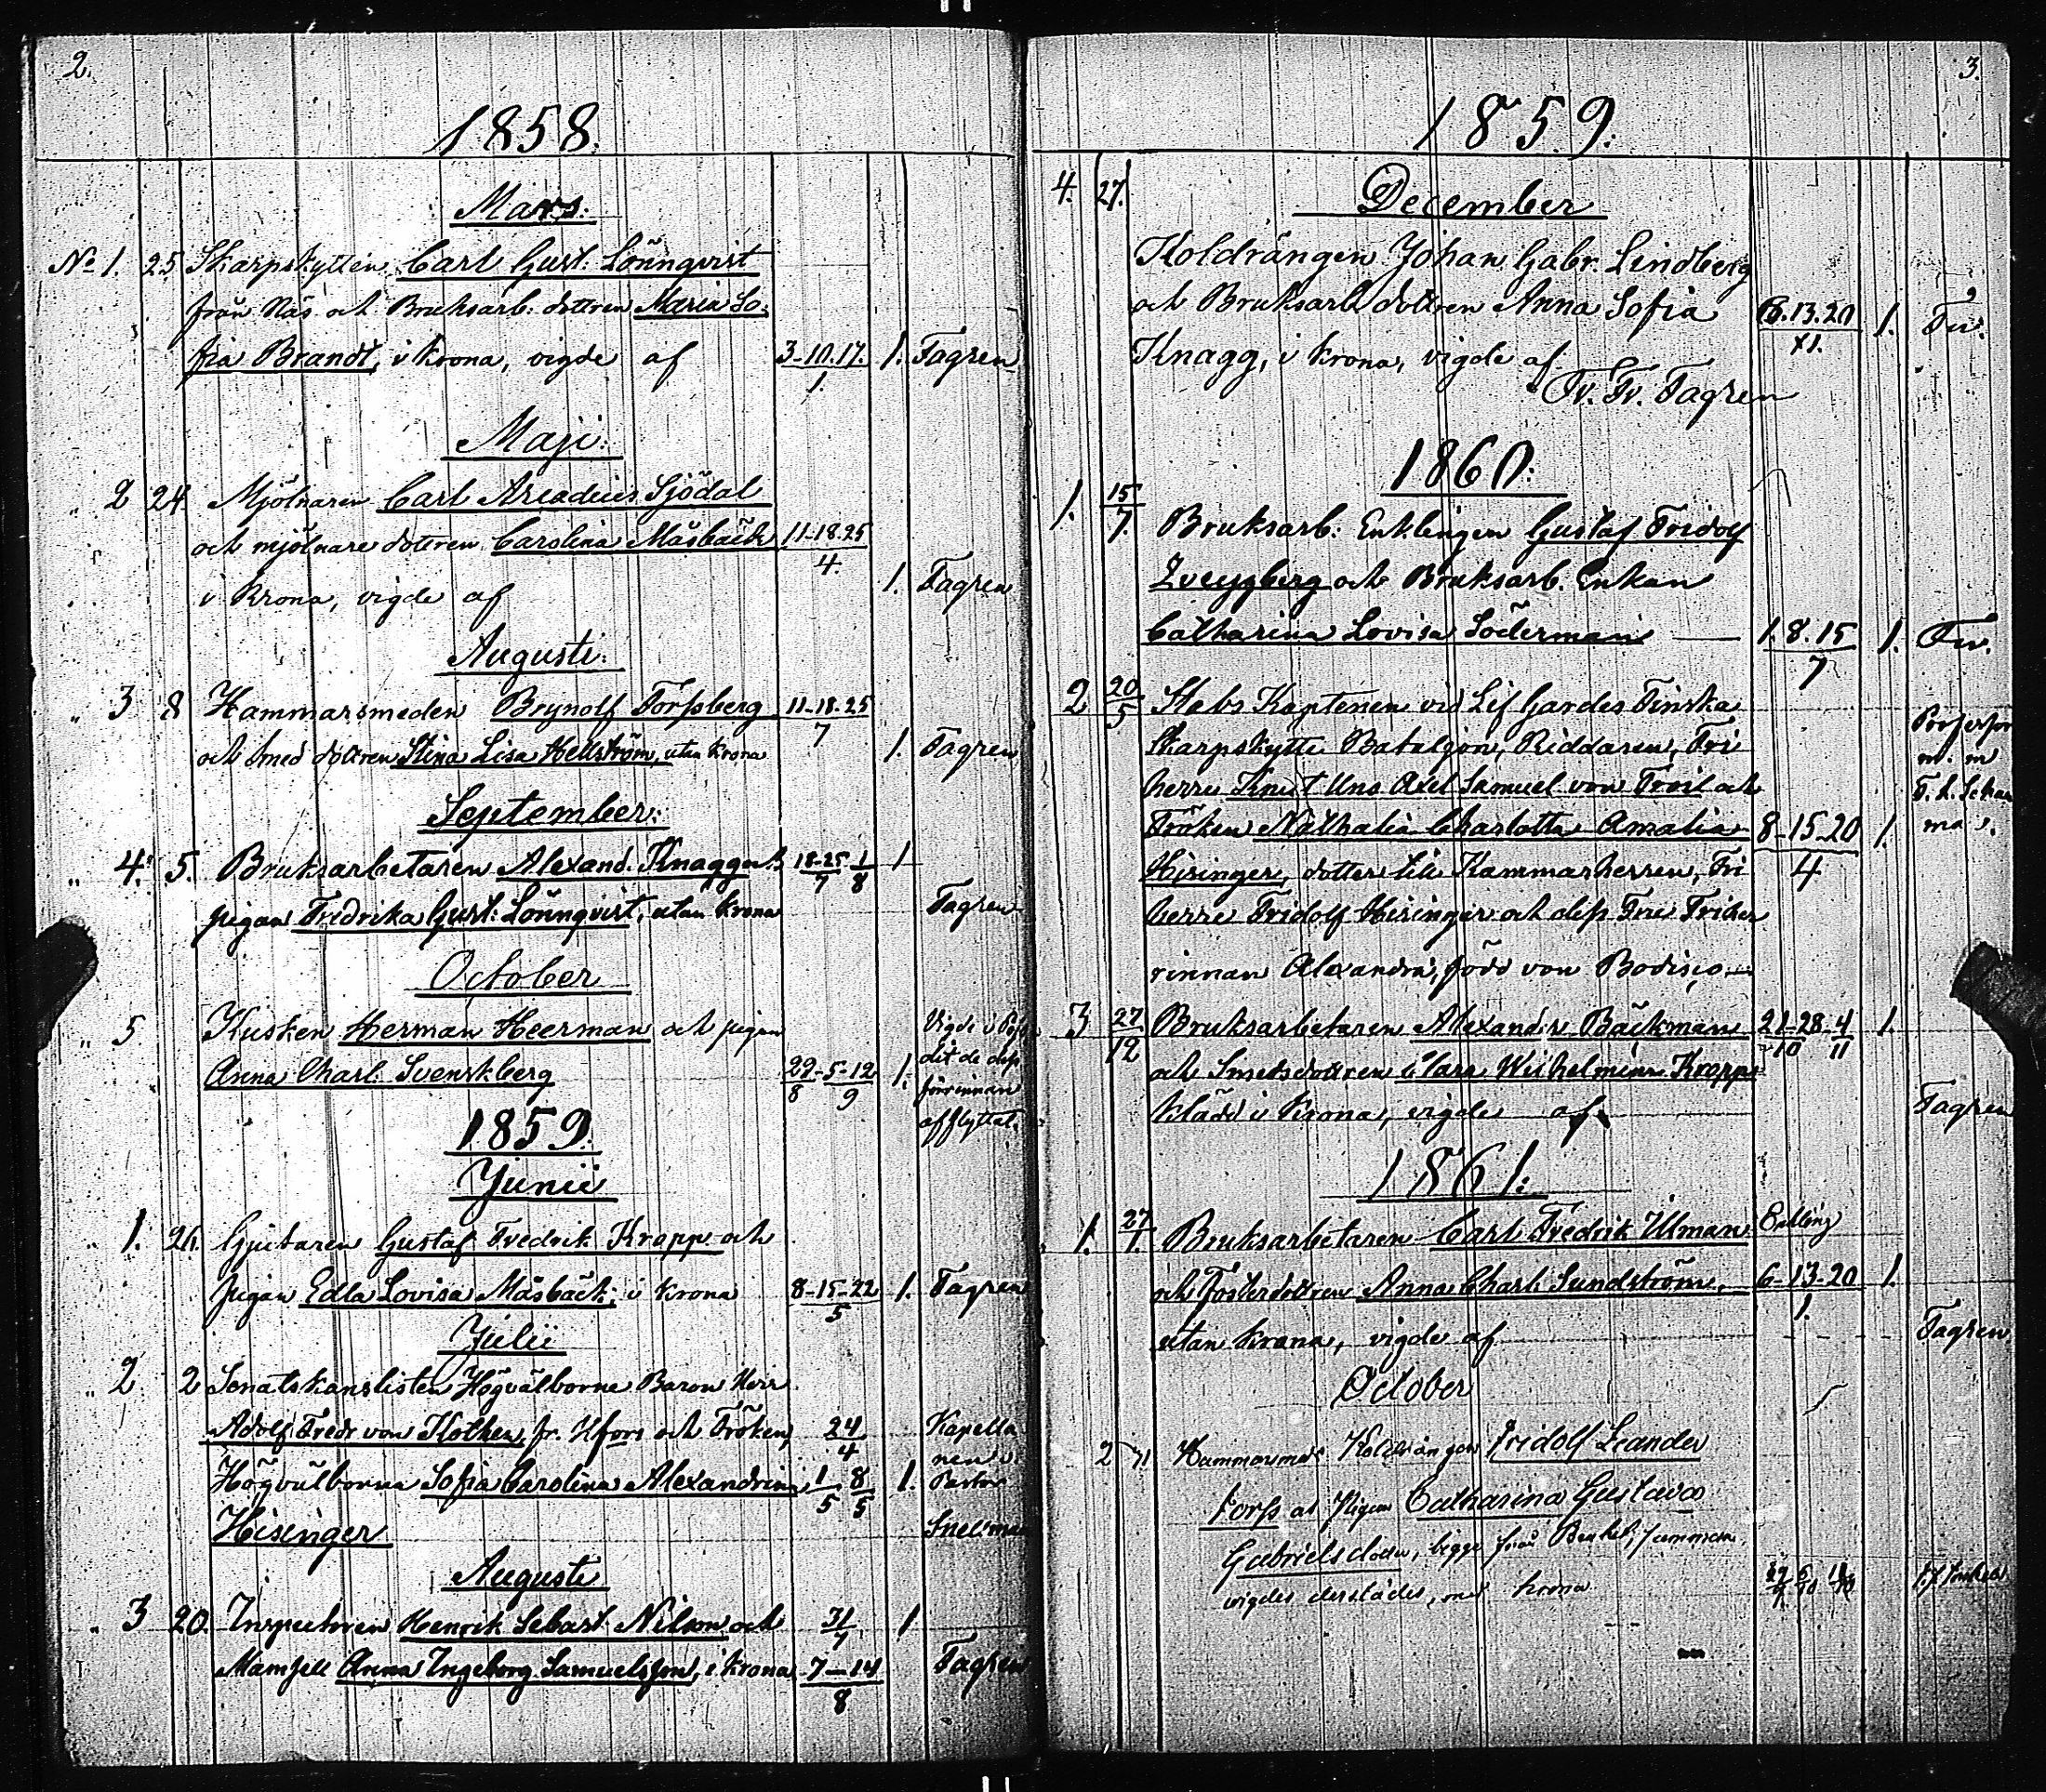 2.
1858.
Mars:
No 1. 25 Skarpskytten Carl Gust: Lönnqvist
från Näs och Bruksarb: dottren Maria So-
fia Brandt, i krona, vigde af 3-10.17. 1. Tagren
1.
Maji:
2 24. Mjölnaren Carl Arcadius Sjödal
och mjölnare dottren Carolina Måsbäck 11-18.25
4.
i Krona, vigde af 1. Tagren
Augusti:
" 3 8 Hammarsmeden Brynolf Forssberg 11-18.25
7
och smed dottren Stina Lisa Hellström, utan krona 1. Tagren
September:
" 4. 5. Bruksarbetaren Alexand. Knagg och 18-25 1 1
7 8
pigan Fridrika Gust: Lönnqvist, utan krona Tagren
October
" 5 Kusken Herman Heerman och pigan Vigde i
Anna Charl: Svenskberg 29-5-12 1. dit de dess
8 9 förinnan
afflyttat.
1859.
Junii
1. 26. Gjutaren Gustaf Fredrik Kropp och
pigan Edla Lovisa Måsbäck; i krona 8-15-22 1. Tagren
5
Julii
" 2 2 Senatskanslisten Högvälborne Baron Herr
Adolf Fredr von Kothen, fr. Hfors och Fröken, 24 Kapella
4 nen
Högvälborna Sofia Carolina Alexandrina 1 8 1. Pastor
5 5
Hisinger Snellman
Augusti
" 3 20. Inspectoren Henrik Sebast. Nilson och 31 1
7
Mamsell Anna Ingeborg Samuelsson, i krona 7-14 Tagren
8
3.
1859.
4. 27. December
Koldrängen Johan Gabr. Lindberg
och Bruksarb. dottren Anna Sofia 6.13.20 1.
XI.
Knagg, i krona, vigde af
Fr. Fr. Tagren
1860.
1. 15
7. Bruksarb: Enklingen Gustaf Fridolf
Zveygberg och Bruksarb. Enkan
Catharina Lovisa Söderman 1.8.15 1.
7
2 20
5 Stabs Kaptenen vid Lif Gardes Finska
Skarpskytte Bataljon, Riddaren, Fri Professor
m. m
herre Knut Uno Axel Samuel von Troil och F. L. Schau
Fröken Nathalia Charlotta Amalia 8-15-20 1. man.
Hisinger, dotter till Kammarherren, Fri 4
herre Fridolf Hisinger och dess Fru Friher
rinnan Alexandra, född von Bodisco
3 27
12 Bruksarbetaren Alexander Bäckman 21-28-4 1.
10 11
och Smedsdottren Clara Wilhelmina Kropp
klädd i krona, vigde af Tagren
1861.
1. 27
1. Bruksarbetaren Carl Fredrik Ulman Enkling
och Fosterdottren Anna Charl. Sundström, 6-13-20 1.
1.
utan krona, vigde af Tagren
October
2 Hammarsmeds Koldrängen Fridolf Leander
Forss och Pigan Catharina Gustava
Gabrielsdotter, bägge från
vigdes derstädes, med krona